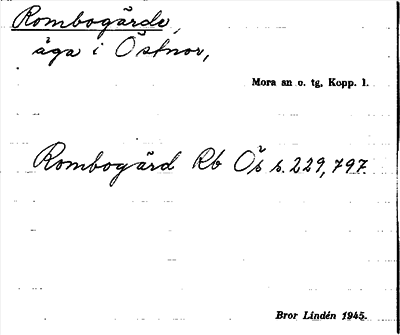 Rombogårde,
äga i Östnor,
Mora an o. tg, Kopp. l.
Rombogård Rb Ös s. 229, 797.
Bror Lindén 1945.